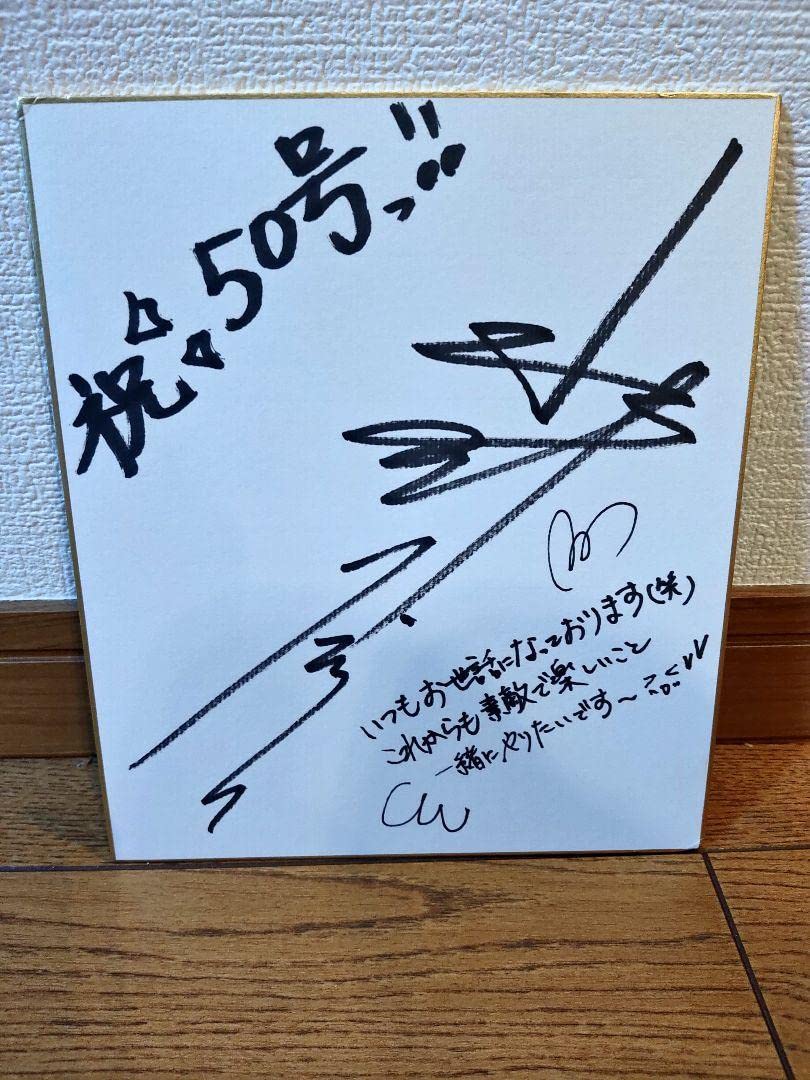 祝 50号!!
いつもお世話になっております(笑)
これからも素敵で楽しいこと
一緒にやりたいです〜